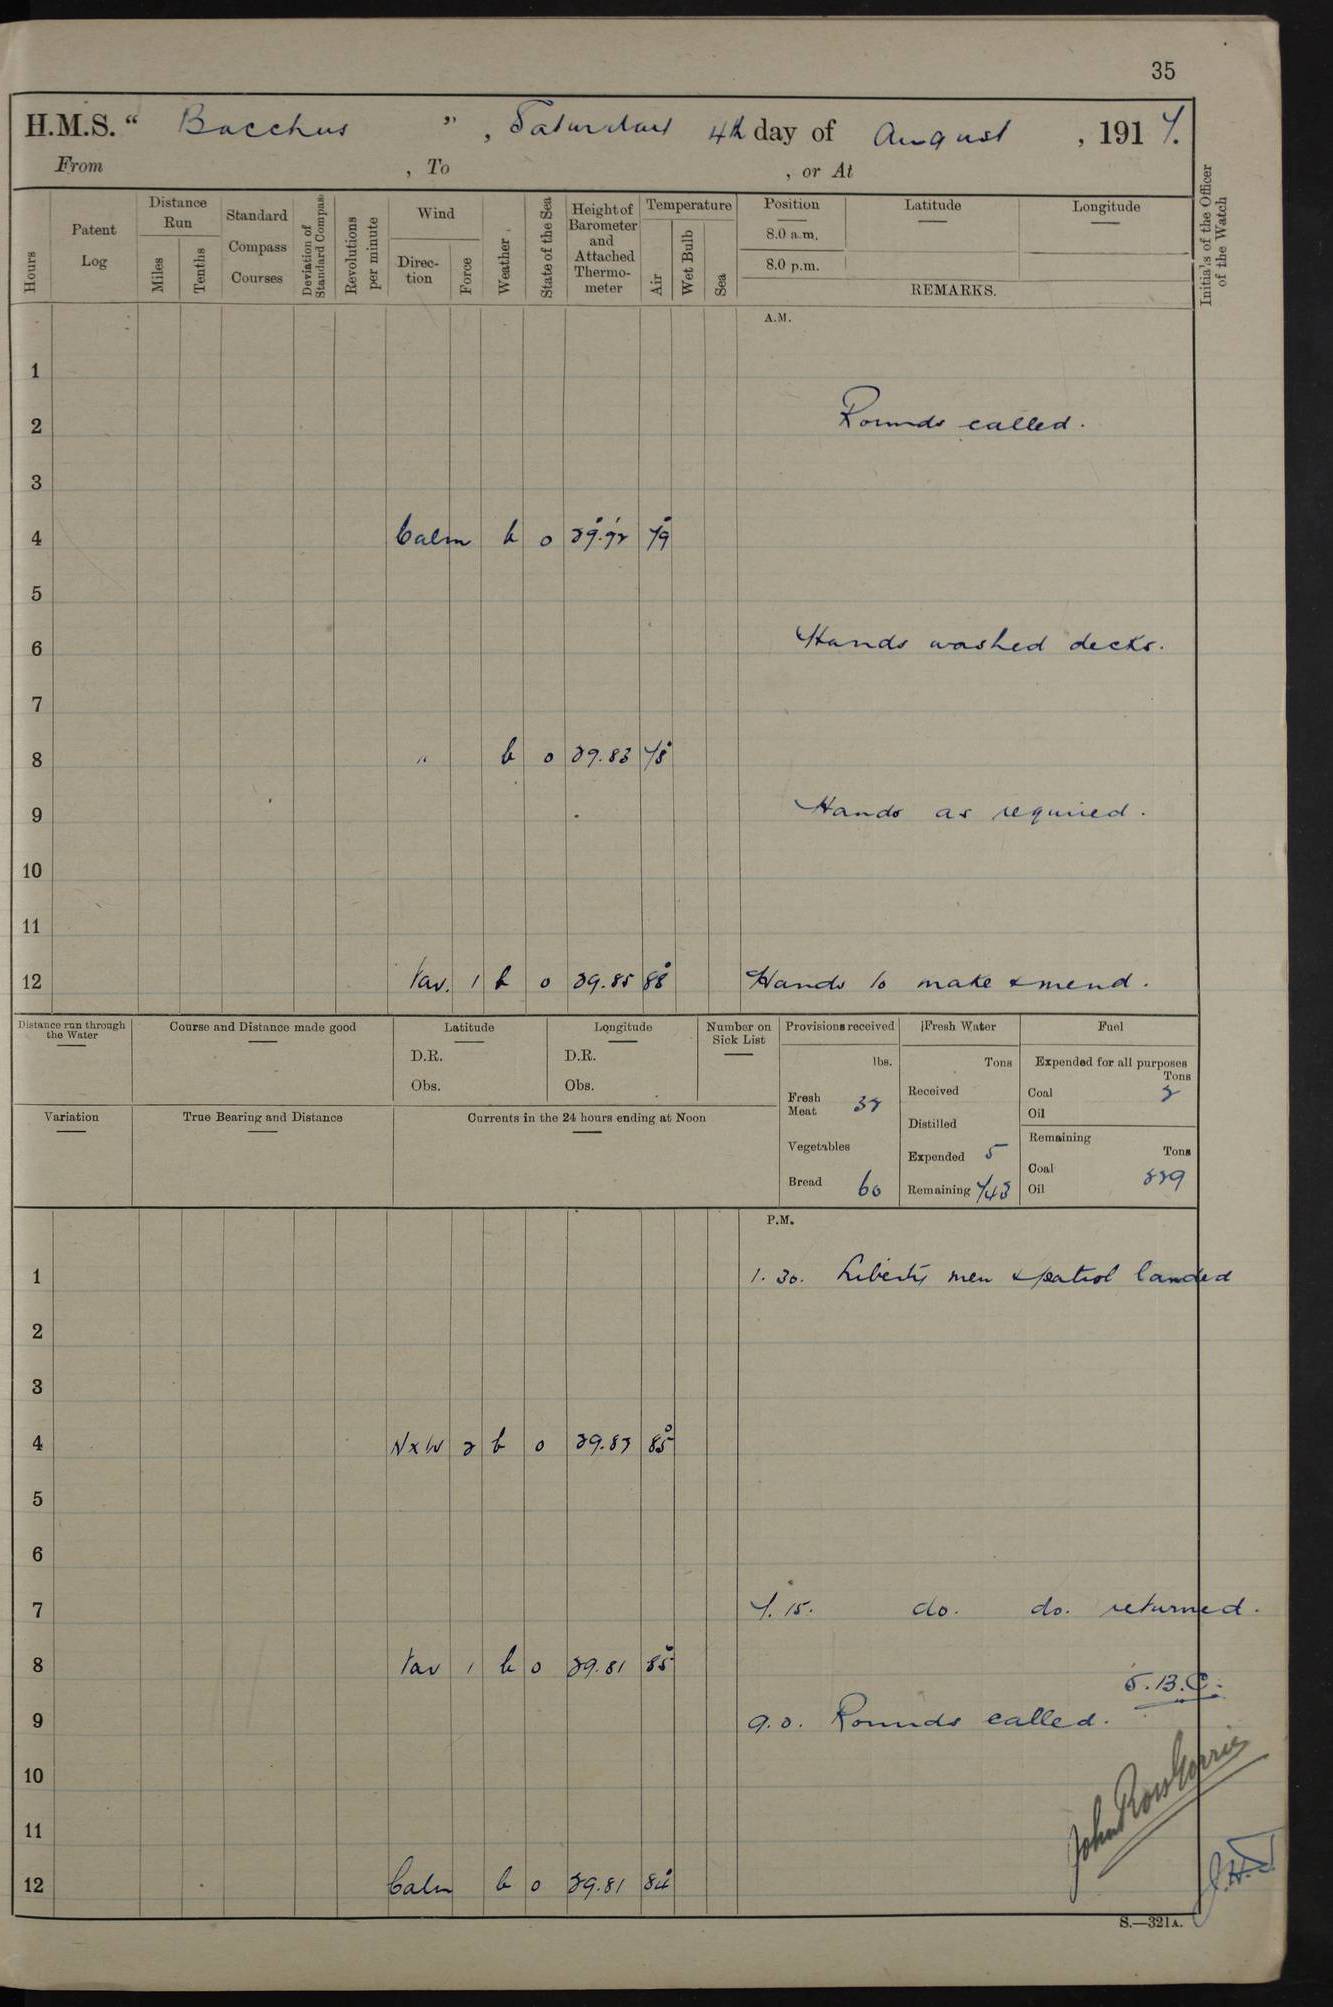 35
H.M.S. " Bacchus ", Saturday 4th day of August, 1917.
From , To , or At
Hours
Patent Log
Distance Run
Miles
Tenths
Standard Compass Courses
Deviation of Standard Compass
Revolutions per minute
Wind
Direction
Force
Weather
State of the Sea
Height of Barometer and Attached Thermometer
Temperature
Air
Wet Bulb
Sea
Position
8.0 a.m.
8.0 p.m.
Latitude
Longitude
REMARKS.
Initials of the Officer of the Watch
A.M.
1
2 Rounds called.
3
4 Calm b 0 79
5
6 Hands washed decks.
7
8 " b 0 29.83 78
9 Hands as required.
10
11
12 Var. 1 b 0 29.85 88 Hands to make & mend.
Distance run through the Water
Course and Distance made good
Latitude
D.R.
Obs.
Longitude
D.R.
Obs.
Number on Sick List
Variation
True Bearing and Distance
Currents in the 24 hours ending at Noon
Provisions received
lbs.
Fresh Meat 32
Vegetables
Bread 60
Fresh Water
Tons
Received
Distilled
Expended 5
Remaining 743
Fuel
Expended for all purposes
Tons
Coal 2
Oil
Remaining
Tons
Coal 229
Oil
P.M.
1 1.30. Liberty men & patrol landed
2
3
4 N x W 2 b 0 85
5
6
7 7.15. do. do. returned.
8 Var 1 b 0 29.81 85
9 9.0. Rounds called.
10
11
12 Calm b 0 29.81 84
John Ross Gorrie
S.—321A.